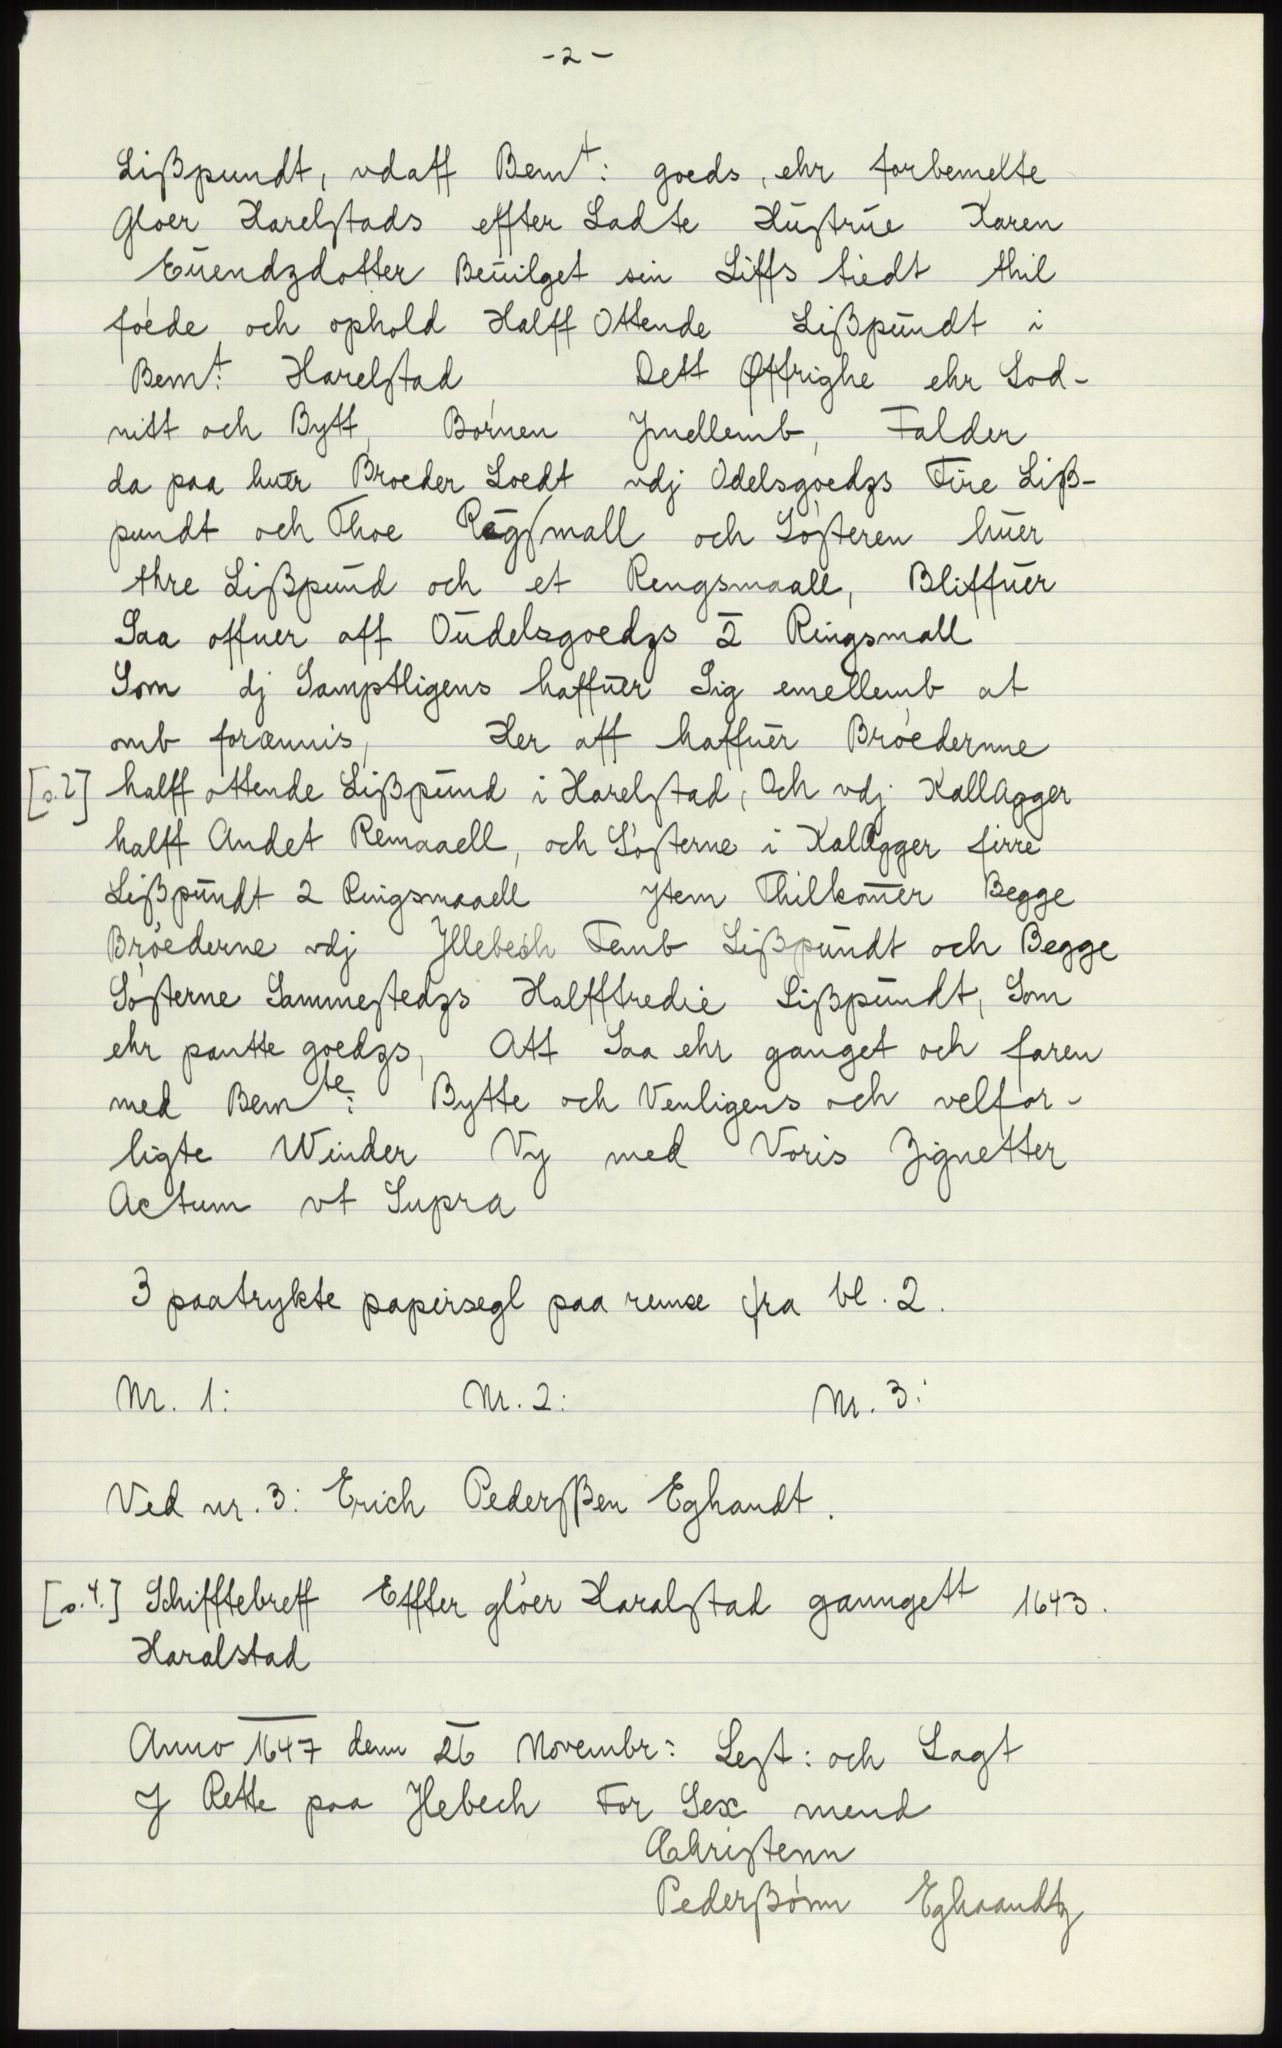 -2-
Lißpundt, vdaff Bemt: goeds, ehr forbemelte
Gloer Harelstads effter Ladte Hustrue Karen
Euendzdotter Beuilget sin Liffs tiedt thil
føede och ophold Halff Ottende Lißpundt i
Bemt: Harelstad, Dett Øffrighe ehr Lod-
nitt och Bytt, Børnen Jmellemb, Falder
da paa huer Broeder Loedt vdj Odelsgoedzs Fire Liß-
pundt och Thoe Rёgsmall och Søsteren huer
thre Lißpund och et Rengsmaall, Bliffuer
Saa offuer aff Oudelsgoedzs 2 Ringsmall
Som dj Samptligens haffuer Sig emellemb at
omb forænnis, Her aff haffuer Brøedernne
[s.2] halff ottende Lißpund i Harelstad, Och vdj Kallagger
halff Andet Remaaell, och Søsterne i Kalagger firre
Lißpundt 2 Ringsmaaell Jtem Thilkomer Begge
Brøederne vdj Jllebech Femb Lißpundt och Begge
Søsterne Sammestedzs Halfftredie Lißpundt, Som
ehr pantte goedzs, Att Saa ehr ganget och faren
med Bemte: Bytte och Venligens och velfor-
ligte Winder Vy med Voris Zignetter
Actum vt Supra
3 paatrykte papirsegl paa remse fra bl. 2.
Nr. 1: Nr. 2: Nr. 3:
Ved nr. 3: Erich Pedersßen Eghandt.
[s.4.] Schifftebreff Effter gløer Haralstad ganngett 1643.
Haralstad
Anno 1647 denn 26 Novembr: Lest: och Lagt
J Rette paa Jlebech For Sex mend
Christenn
Pederßønn Eghaandtz